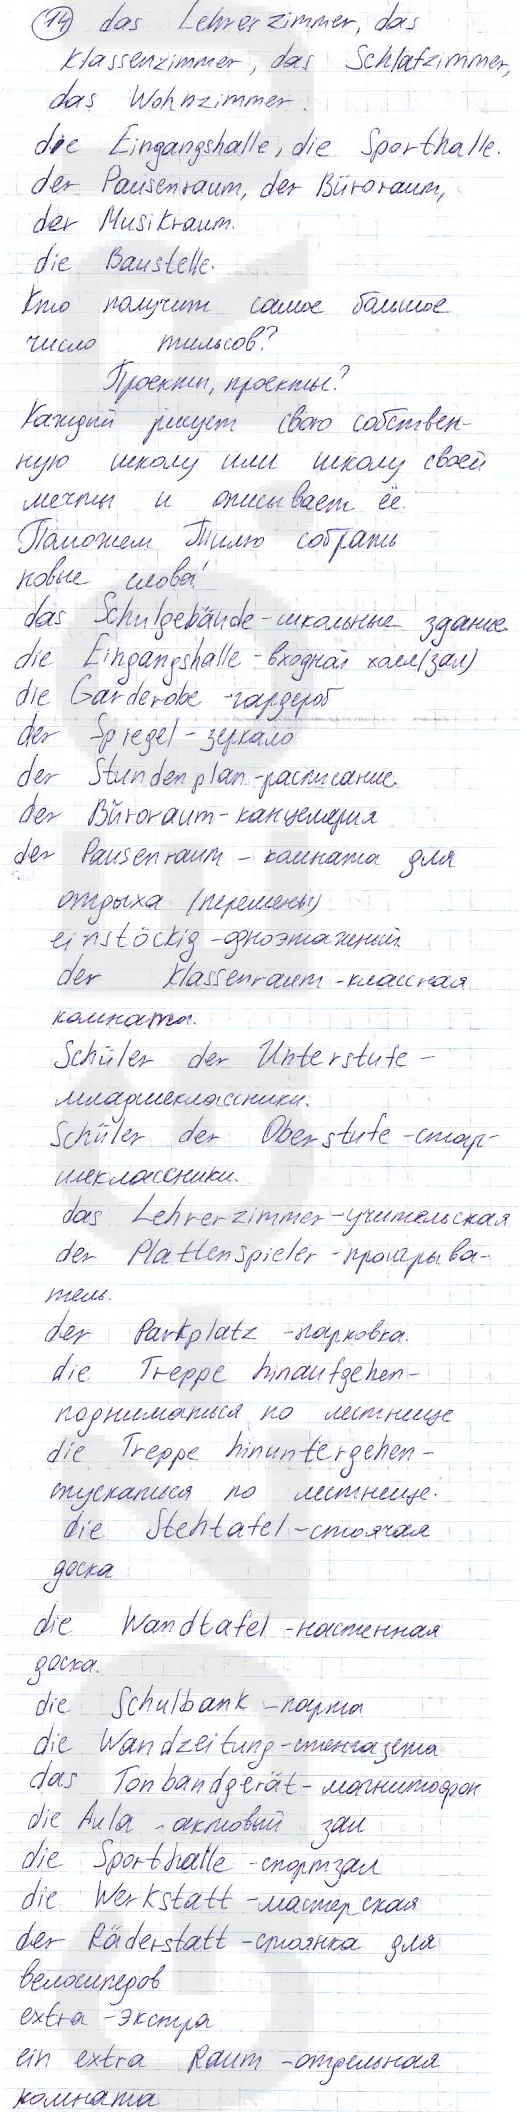 14 das Lehrerzimmer, das
Klassenzimmer, das Schlafzimmer,
das Wohnzimmer.
die Eingangshalle, die Sporthalle.
der Pausenraum, der Büroraum,
der Musikraum.
die Baustelle.
Кто получит самое большое
число тильсов?
Проекты, проекты?
Каждый рисует свою собствен-
ную школу или школу своей
мечты и описывает её.
Поможем Тилю собрать
новые слова!
das Schulgebäude - школьные здание.
die Eingangshalle - входной холл (зал)
die Garderobe - гардероб
der Spiegel - зеркало
der Stundenplan - расписание.
der Büroraum - канцелярия
der Pausenraum - комната для
отдыха (перемены)
einstöckig - одноэтажный.
der Klassenraum - классная
комната.
Schüler der Unterstufe -
младшеклассники.
Schüler der Oberstufe - стар-
шеклассники.
das Lehrerzimmer - учительская
der Plattenspieler - проигрыва-
тель.
der Parkplatz - парковка.
die Treppe hinaufgehen -
подниматься по лестнице
die Treppe hinuntergehen -
спускаться по лестнице.
die Stehtafel - стоячая
доска
die Wandtafel - настенная
доска.
die Schulbank - парта
die Wandzeitung - стенгазета
das Tonbandgerät - магнитофон
die Aula - актовый зал
die Sporthalle - спортзал
die Werkstatt - мастерская
der Räderstatt - стоянка для
велосипедов
extra - экстра
ein extra Raum - отдельная
комната